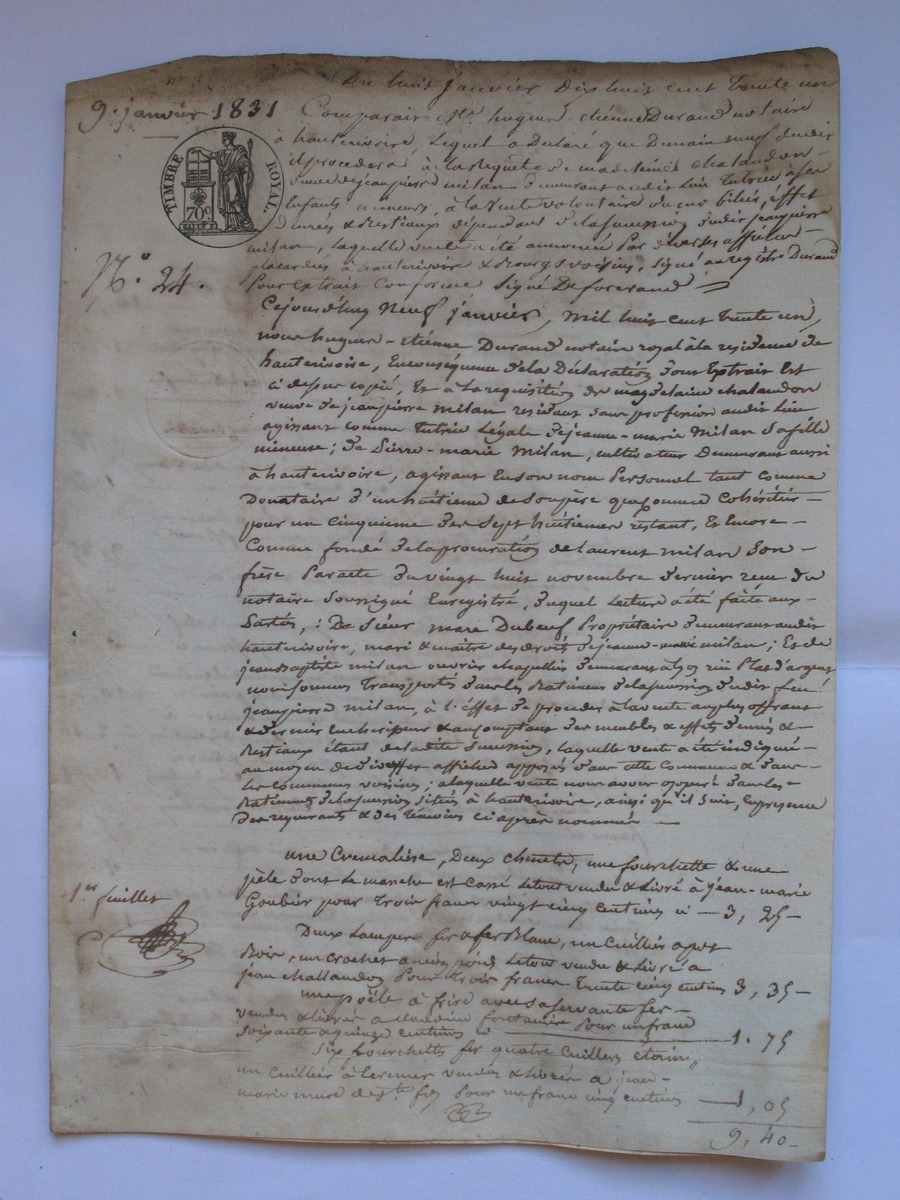 Du huit janvier Dix huit cent trente un
9. janvier 1831
Comparait Mr. hugues etienne Durand notaire
à hauterivoire, Lequel a Déclaré que Demain neuf dudit
il procedera à la Requete de madeleine chalandon
veuve de jeanpierre milan demeurant audit Lieu Tutrice à ses
Enfants mineurs, à la vente volontaire du mobilier, effet
denrées & Bestiaux dépendant de la succession dudit jeanpierre
milan, laquelle vente a été annoncée par diverses affiches
placardées à hauterivoire & Bourgs voisins, signé au registre Durand
Pour extrait Conforme signé Deforerand
TIMBRE ROYAL.
70c
N° 24.
Cejourd'huy Neuf janvier, Mil huit cent trente un,
nous hugues-etienne Durand notaire royal à la residence de
hauterivoire, En conséquence de la Déclaration dont Extrait Est
ci dessus copié, Et à la requisition de magdelaine chalandon
veuve de jeanpierre Milan residant sans profession audit Lieu
agissant comme Tutrice Légale de jeanne-marie Milan sa fille
mineure; de Pierre-marie Milan, cultivateur Demeurant aussi
à hauterivoire, agissant En son nom Personnel tant comme
Donataire d'un huitieme de son père que comme Cohéritier
pour un cinquieme des sept huitiemes restant, Et Encore
Comme fondé de la procuration de laurent milan son
frère Par acte du vingt huit novembre dernier recu du
notaire soussigné Enregistré, duquel Lecture a été faite aux
Parties, : De Sieur marc Duboeuf Propriétaire demeurant audit
hauterivoire, mari & maitre des droits de jeanne milan; Et de
jean Baptiste milan ouvrier chapellier demeurant à Lyon rue Plat d'argent
nous sommes Transportés dans les Batimens de la succession dudit feu
jeanpierre milan, à l'effet de proceder à la vente au plus offrant
& dernier Encherisseur & au comptant des meubles & effets denrées &
Bestiaux étant de ladite succession, laquelle vente a été indiquée
au moyen de diverses affiches apposés dans cette Commune & dans
les communes voisines; a laquelle vente nous avons procuré dans les
Batimens de la succession situés à hauterivoire, ainsi qu'il suit, En presence
des requerants & des Témoins ci après nommés
une Cremalière, Deux chenets, une fourchette & une
pèle dont le manche est cassé Le tout vendu & Livré à jean-marie
Goubier pour trois francs vingt cinq centimes ci — 3, 25
1er feuillet
Deux Lampes fer & fer Blanc, un Cuillier a pot
Bois, un crochet a Letout vendu & Livré a
jean challandon Pour trois francs trente cinq centimes 3, 35
une poële à frire avec sa servante fer
vendus & Livrés a fontaine Pour un franc
soixante & quinze centimes ci 1. 75
Six fourchettes fer quatre Cuillers etain,
un Cuillier à Lecumer vendus & Livrés a jean
marie mure de ste foy Pour un franc cinq centimes 1, 05
9, 40